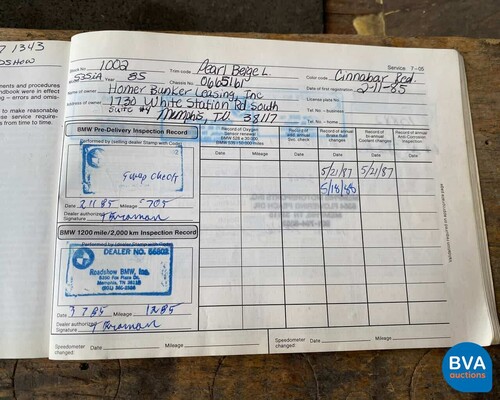 7 1343
OSHOW
Stock No. 1002 Trim code Pearl Beige L. Service 7-05
535iA Year 85 Chassis No. 0665161 Color code Cinnabar Red
Name of owner Homer Bunker Leasing, Inc Date of first registration 2-11-85
Address of owner 1730 White Station Rd South License plate No.
Suite #4 Memphis, TN 38117 Tel. No. - business
Tel. No. - home
edures and
ndbook were in effect
- errors and omis-
to make reasonable
these service require-
from time to time.
BMW Pre-Delivery Inspection Record
Performed by (selling dealer Stamp with Code)
Swap check
Date 2 11 85 Mileage 705
Dealer authorized
Signature
BMW 1200 mile/2,000 km Inspection Record
Performed by (dealer Stamp with Code)
DEALER NO. 66802
Roadshow BMW, Inc.
Memphis, TN 38118
Date 3 7 85 Mileage 1285
Dealer authorized
Signature
Record of Oxygen
Sensor renewal
Record of annual
Brake fluid
changes
Record of
bi-annual
Coolant changes
Record of annual
Anti-Corrosion
Inspection
Date Mileage Date Date Date Date
5/21/87 5/21/87
5/18/88
Validation required on appropriate page
Speedometer
changed: Date Mileage
Speedometer
changed: Date Mileage
BVA
auctions